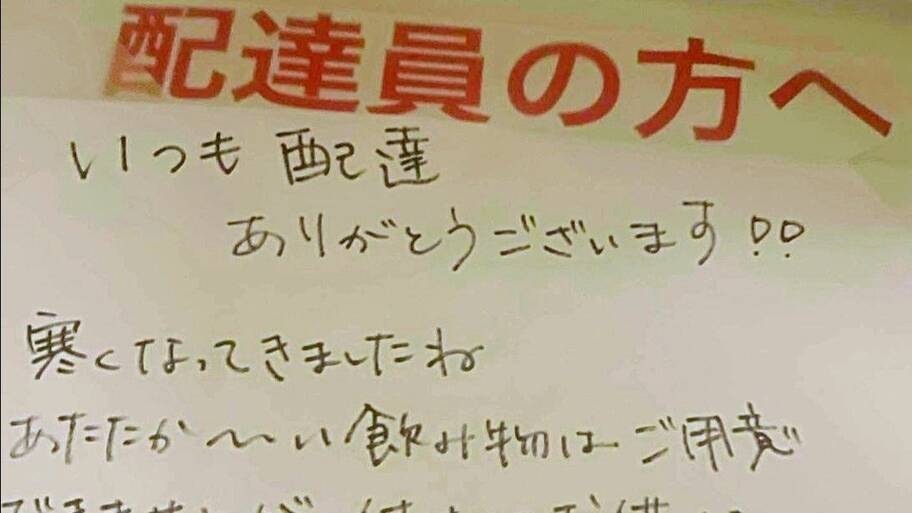 配達員の方へ
いつも配達
ありがとうございます!!
寒くなってきましたね
あたたか〜い飲み物はご用意